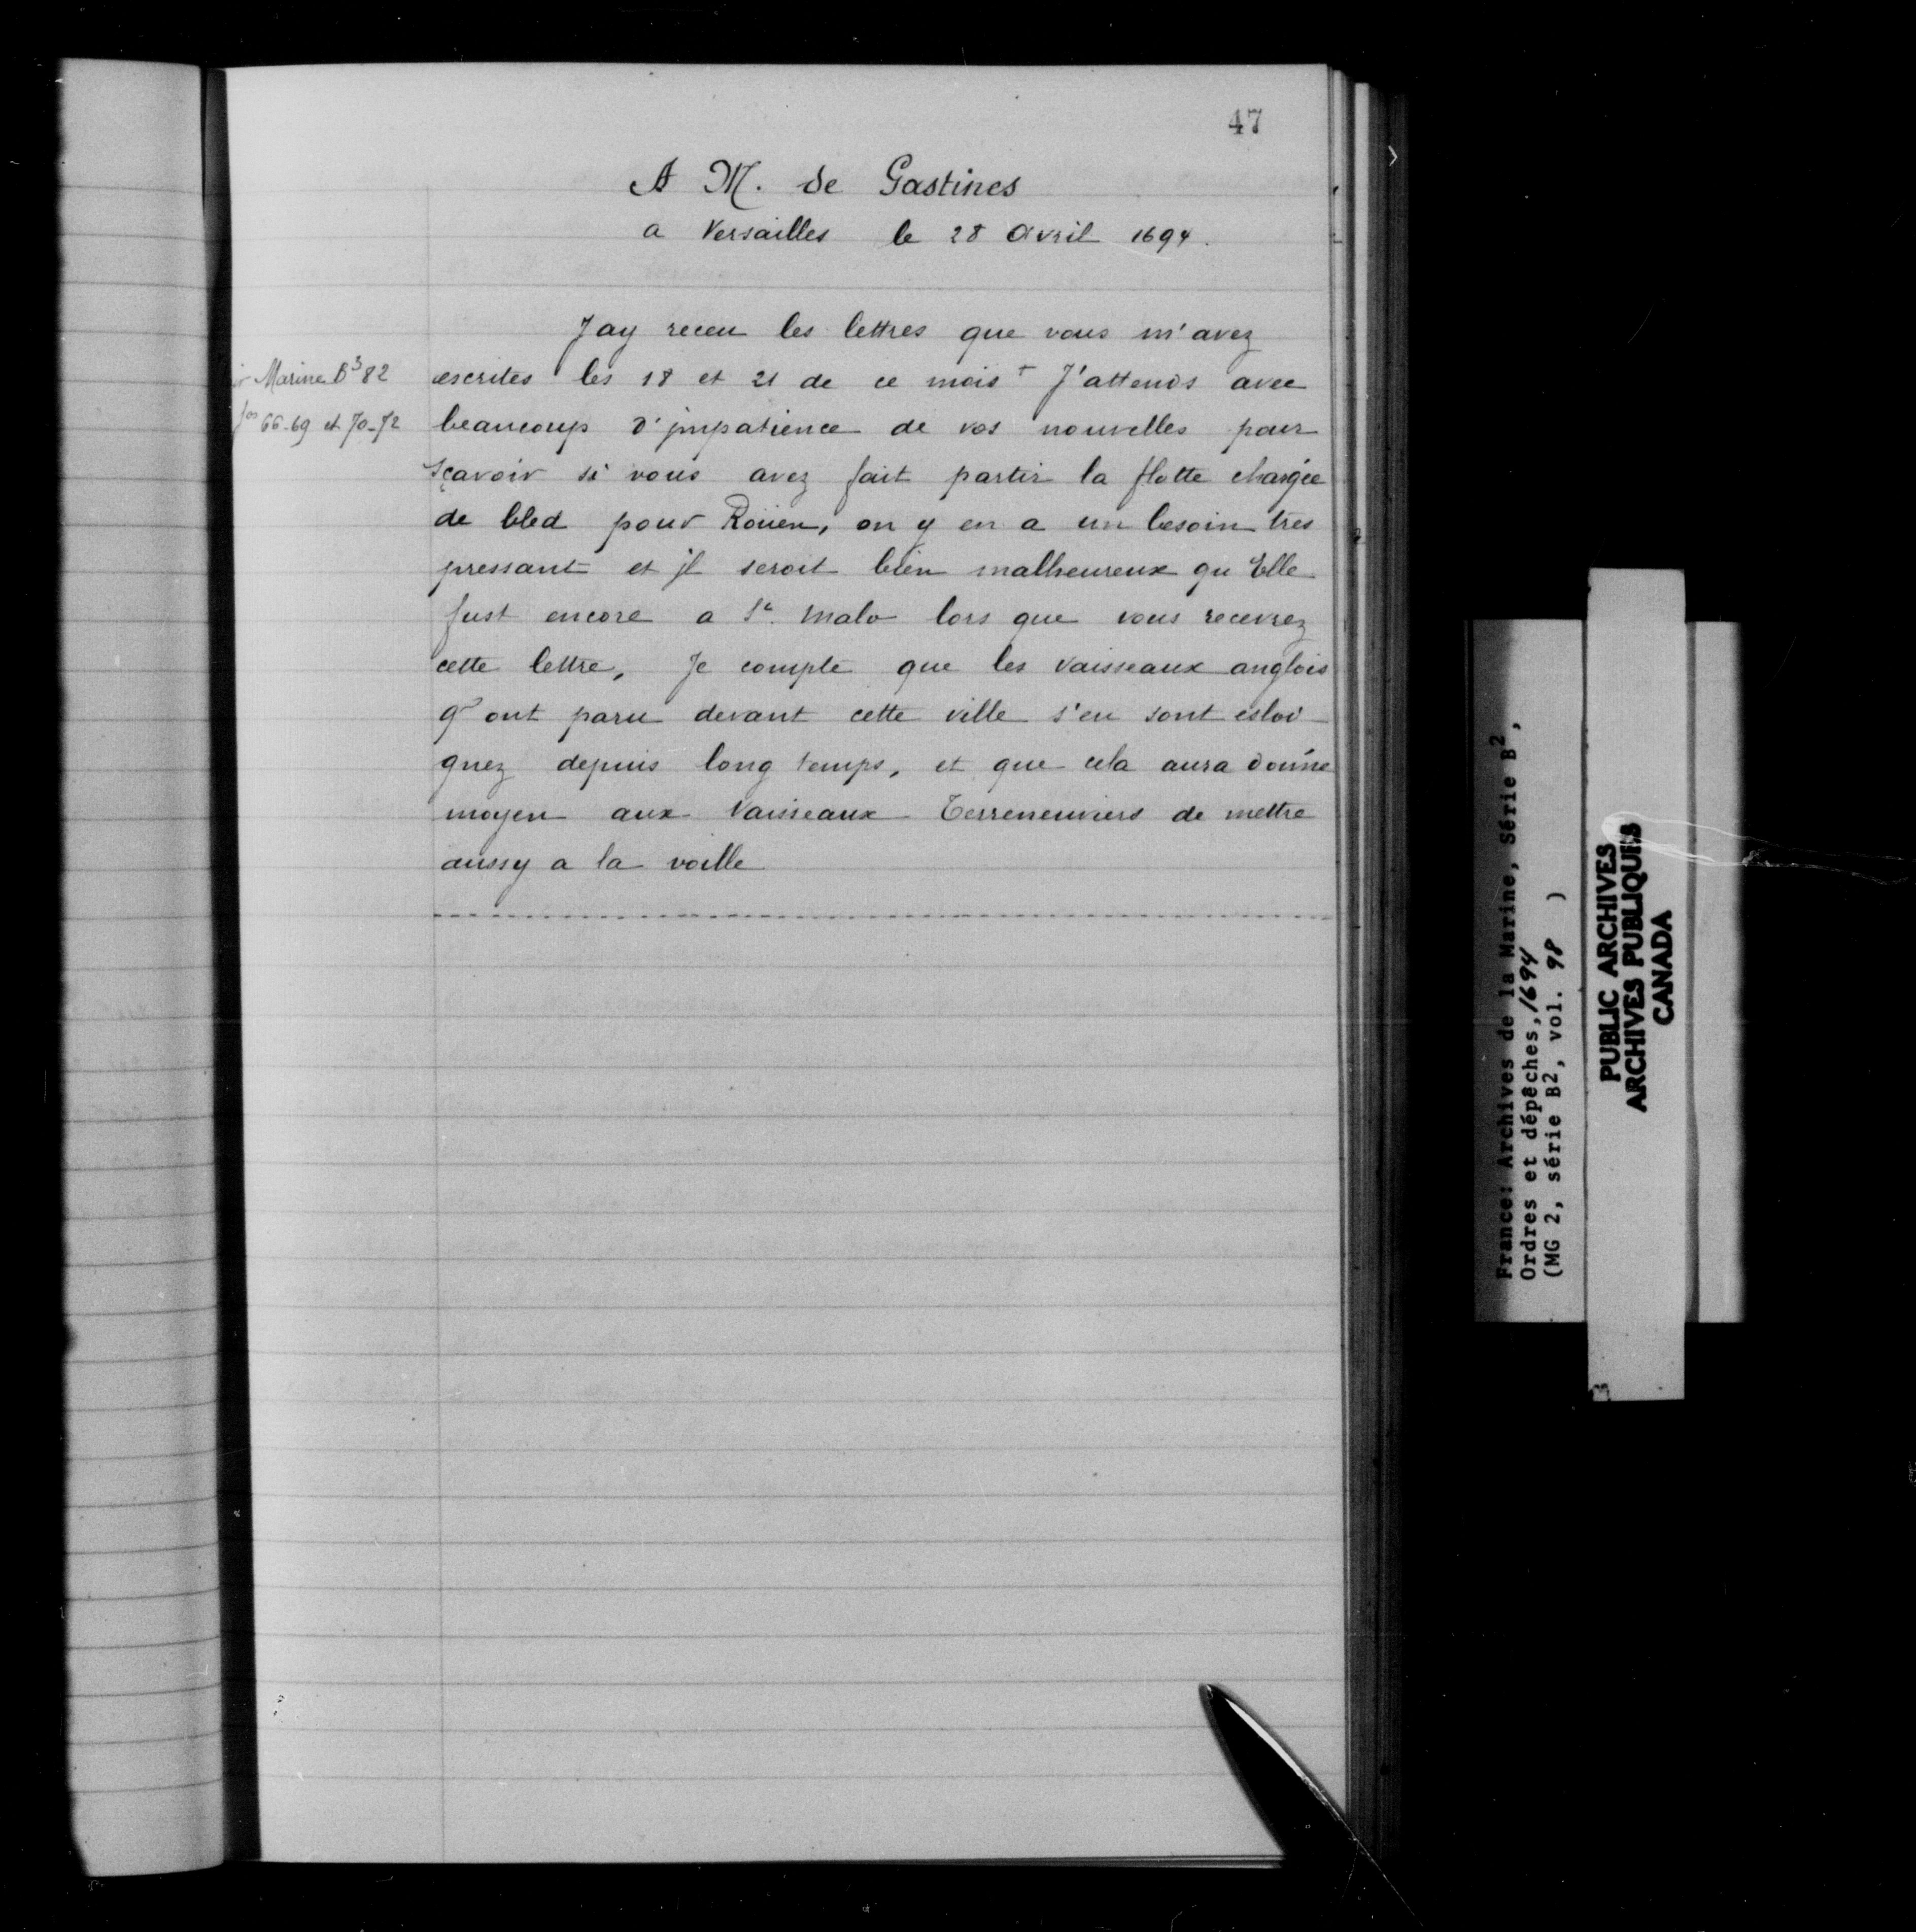 47
A M. de Gastines
a Versailles le 28 Avril 1694.
Jay receu les lettres que vous m'avez
escrites les 18 et 21 de ce mois + J'attends avec
beaucoup d'jmpatience de vos nouvelles pour
sçavoir si vous avez fait partir la flotte chargée
de bled pour Roüen, on y en a un besoin tres
pressant et jl seroit bien malheureux qu'Elle
fust encore a St. Malo lors que vous recevrez
cette lettre, Je compte que les vaisseaux anglois
qr ont paru devant cette ville s'en sont esloi-
gnez depuis long temps, et que cela aura donné
moyen aux Vaisseaux Terreneuviers de mettre
aussy a la voille
Marine B³ 82
fos 66-69 et 70-72
France: Archives de la Marine, Série B²,
Ordres et dépêches, 1694
(MG 2, série B2, vol. 98 )
PUBLIC ARCHIVES
ARCHIVES PUBLIQUES
CANADA